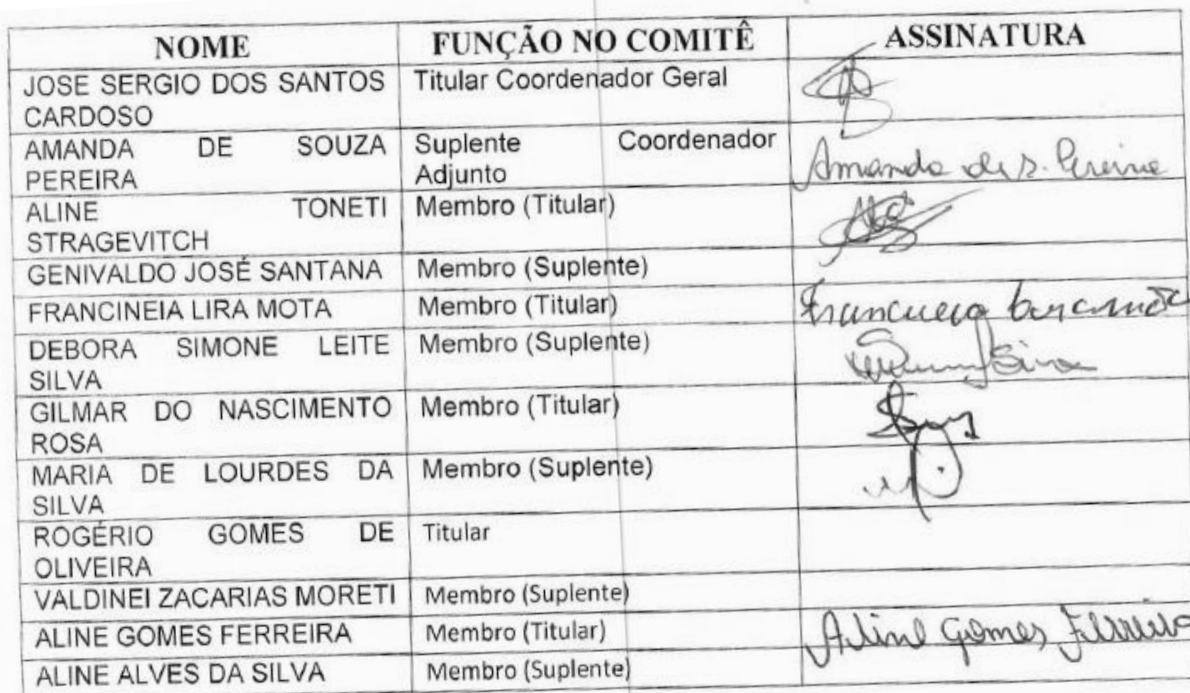 NOME FUNÇÃO NO COMITÊ ASSINATURA
JOSE SERGIO DOS SANTOS Titular Coordenador Geral
CARDOSO
AMANDA DE SOUZA Suplente Coordenador
PEREIRA Adjunto Amanda de S. Pereira
ALINE TONETI Membro (Titular)
STRAGEVITCH
GENIVALDO JOSÉ SANTANA Membro (Suplente)
FRANCINEIA LIRA MOTA Membro (Titular)
DEBORA SIMONE LEITE Membro (Suplente)
SILVA
GILMAR DO NASCIMENTO Membro (Titular)
ROSA
MARIA DE LOURDES DA Membro (Suplente)
SILVA
ROGÉRIO GOMES DE Titular
OLIVEIRA
VALDINEI ZACARIAS MORETI Membro (Suplente)
ALINE GOMES FERREIRA Membro (Titular) Aline Gomes Ferreira
ALINE ALVES DA SILVA Membro (Suplente)